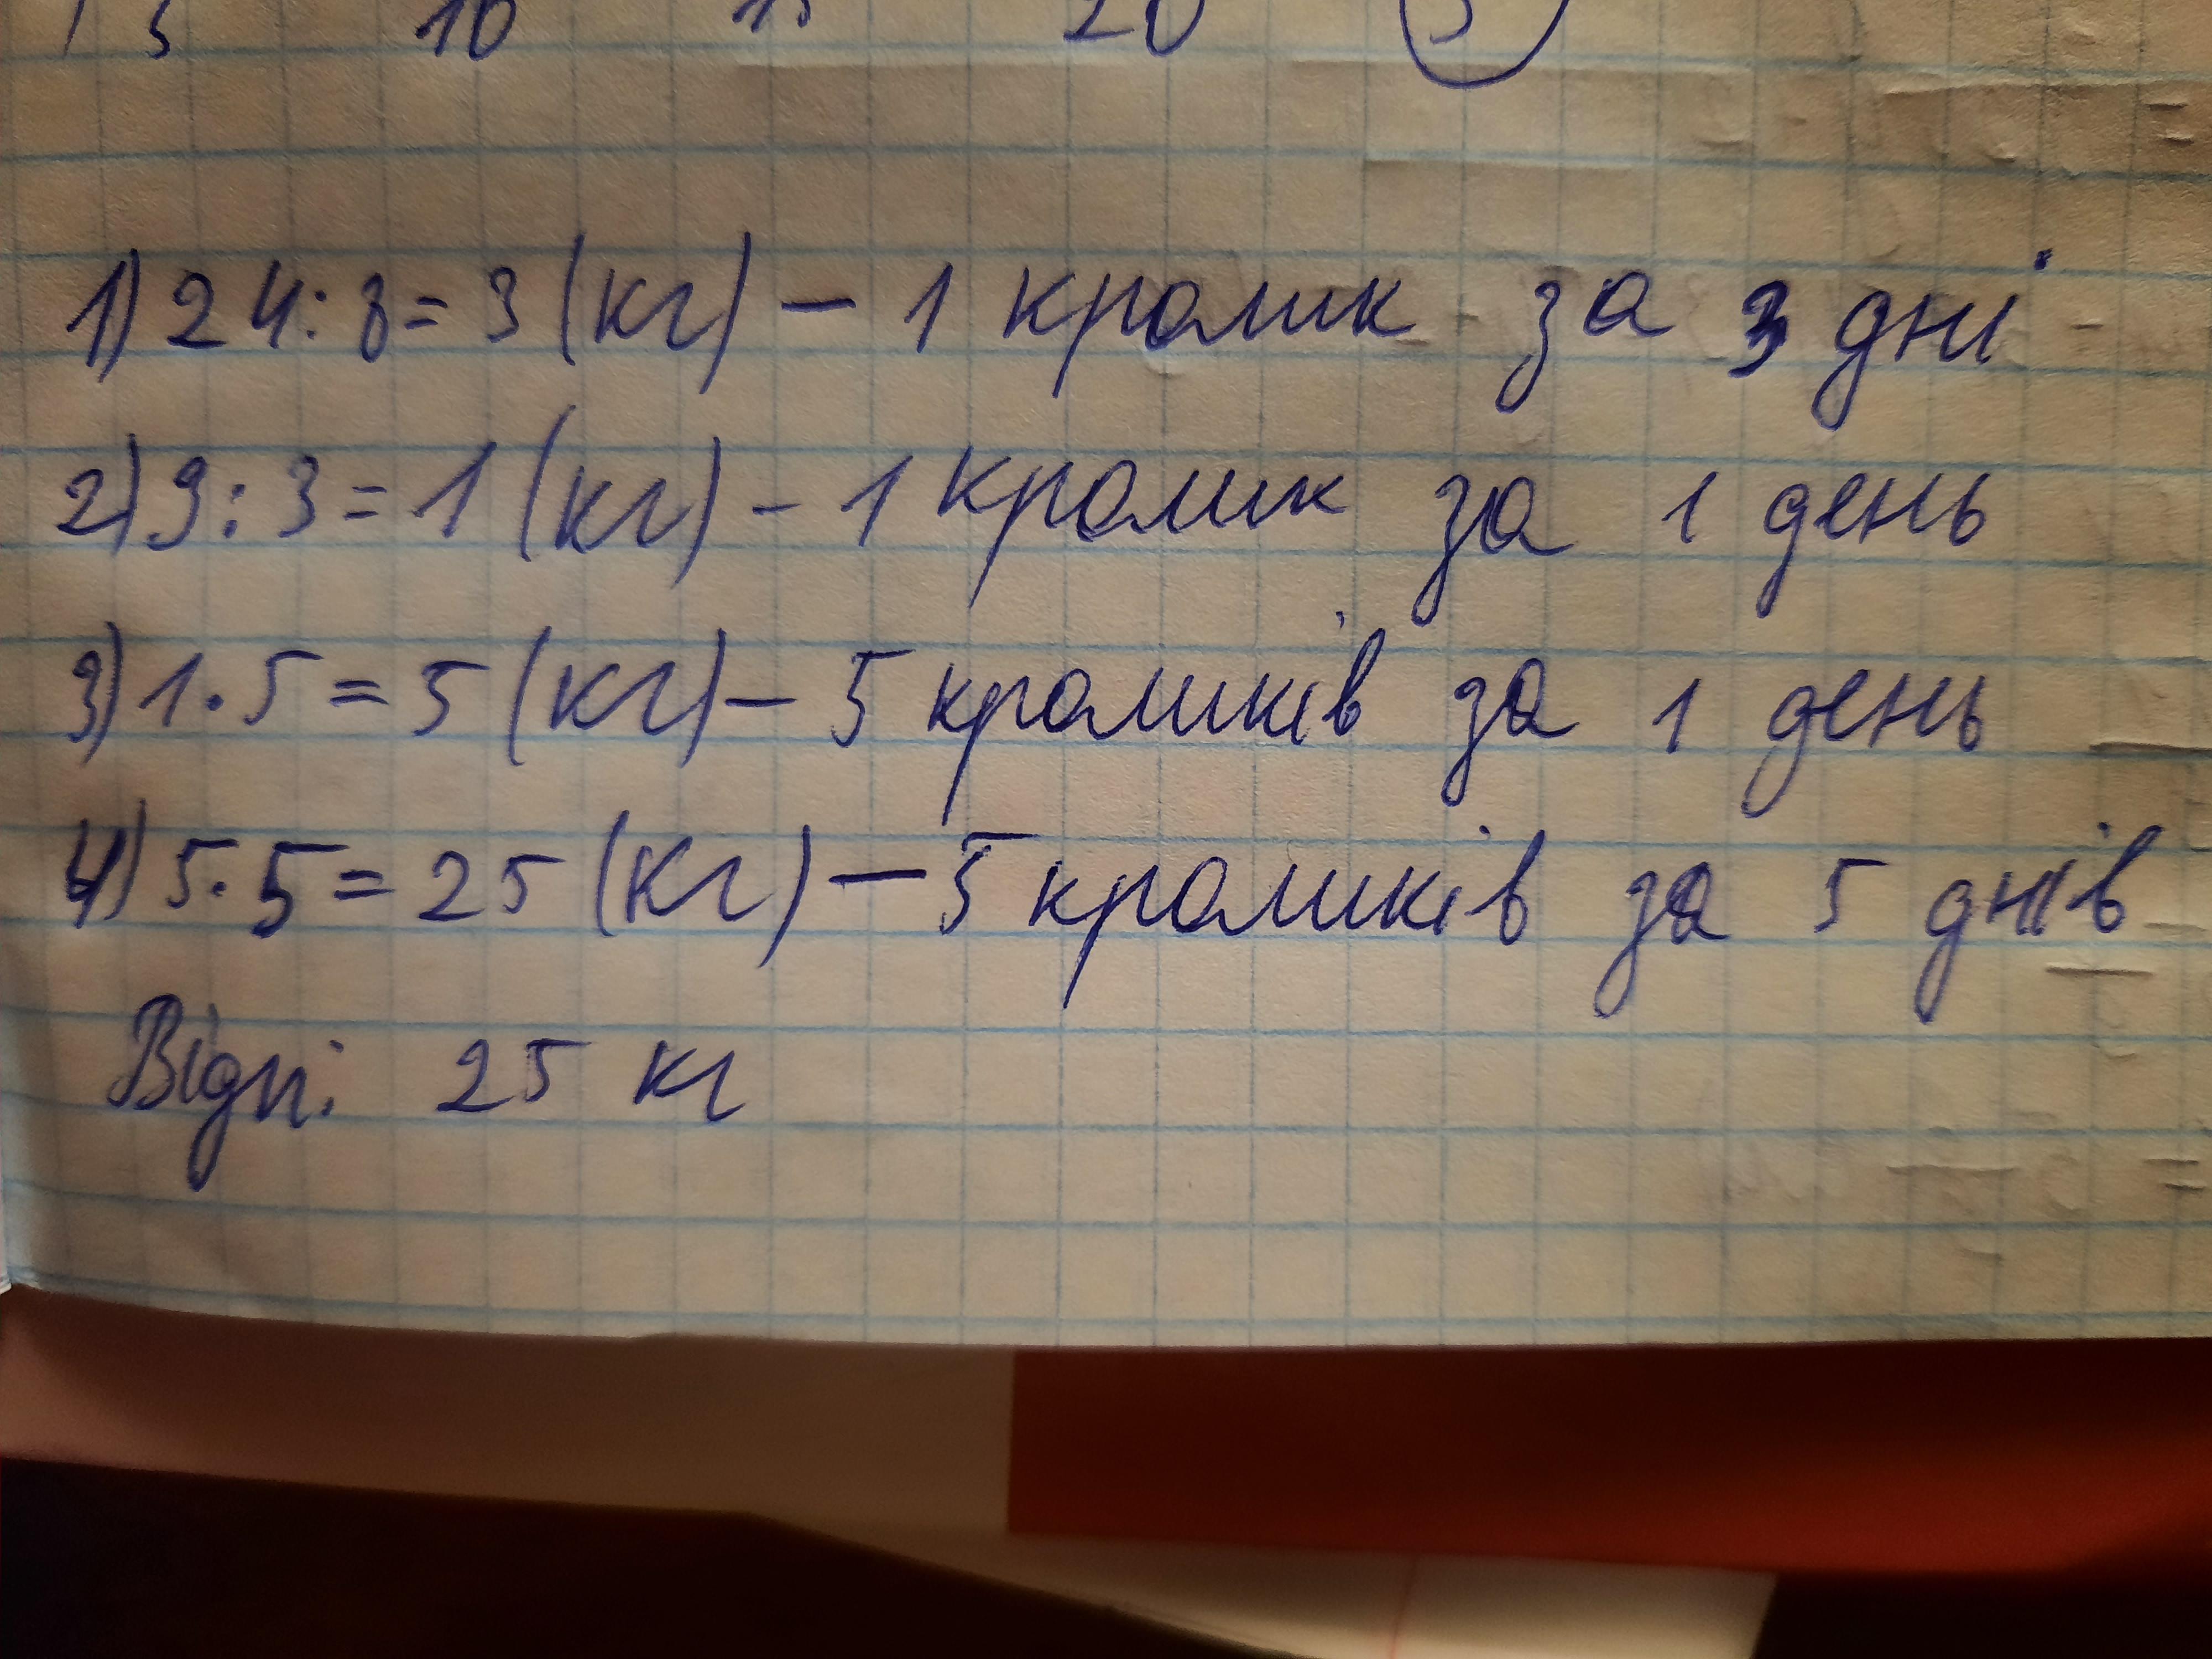 10 20
1) 24 : 8 = 3 (кг) – 1 кролик за 3 дні
2) 3 : 3 = 1 (кг) – 1 кролик за 1 день
3) 1 · 5 = 5 (кг) – 5 кроликів за 1 день
4) 5 · 5 = 25 (кг) – 5 кроликів за 5 днів
Відп: 25 кг